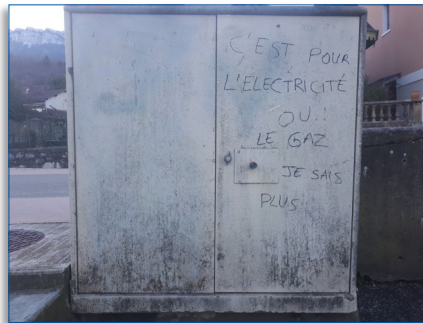 C'EST POUR
L'ÉLECTRICITÉ
OU..
LE GAZ
JE SAIS
PLUS